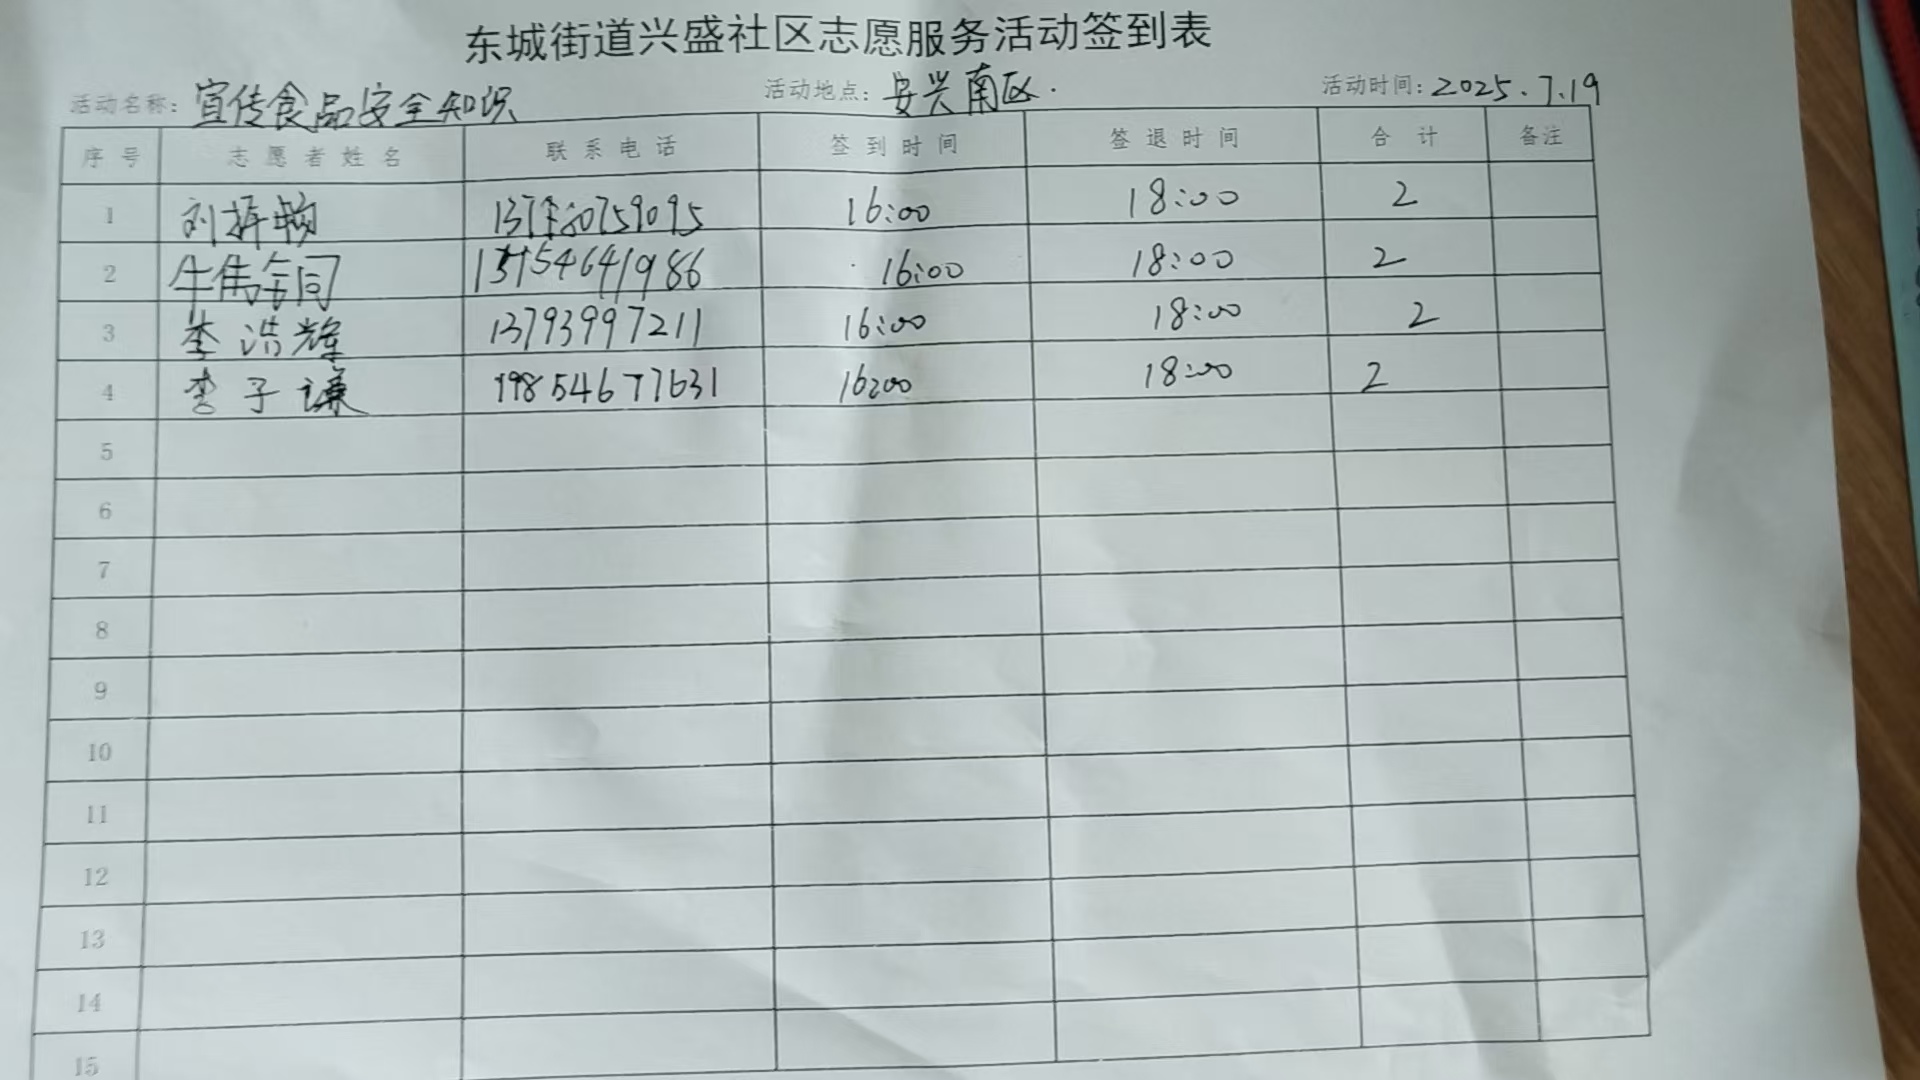 东城街道兴盛社区志愿服务活动签到表
活动名称：宣传食品安全知识 活动地点：安兴南区. 活动时间：2025.7.19
序号 志愿者姓名 联系电话 签到时间 签退时间 合计 备注
1 16:00 18:00 2
2 16:00 18:00 2
3 李浩辉 13793997211 16:00 18:00 2
4 李子谦 19854677631 16:00 18:00 2
5
6
7
8
9
10
11
12
13
14
15